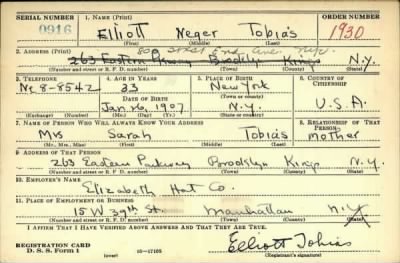 SERIAL NUMBER 1. NAME (Print) ORDER NUMBER
0916 Elliott Neger Tobias 1930
(First) (Middle) (Last)
2. ADDRESS (Print) 808 West End Ave. NYC
263 Eastern Pkway Brooklyn Kings N.Y.
(Number and street or R. F. D. number) (Town) (County) (State)
3. TELEPHONE 4. AGE IN YEARS 5. PLACE OF BIRTH 6. COUNTRY OF CITIZENSHIP
Ne 8-8542 33 New York
DATE OF BIRTH (Town or county)
Jan 26, 1907 N.Y. U.S.A.
(Exchange) (Number) (Mo.) (Day) (Yr.) (State or country)
7. NAME OF PERSON WHO WILL ALWAYS KNOW YOUR ADDRESS 8. RELATIONSHIP OF THAT PERSON
Mrs Sarah Tobias mother
(Mr., Mrs., Miss) (First) (Middle) (Last)
9. ADDRESS OF THAT PERSON
263 Eastern Parkway Brooklyn Kings N.Y.
(Number and street or R. F. D. number) (Town) (County) (State)
10. EMPLOYER'S NAME
Elizabeth Hat Co.
11. PLACE OF EMPLOYMENT OR BUSINESS
15 W 39th St. Manhattan N.Y.
(Number and street or R. F. D. number) (Town) (County) (State)
I AFFIRM THAT I HAVE VERIFIED ABOVE ANSWERS AND THAT THEY ARE TRUE.
REGISTRATION CARD
D. S. S. FORM 1 (over) 16—17105 Elliott Tobias
(Registrant's signature)